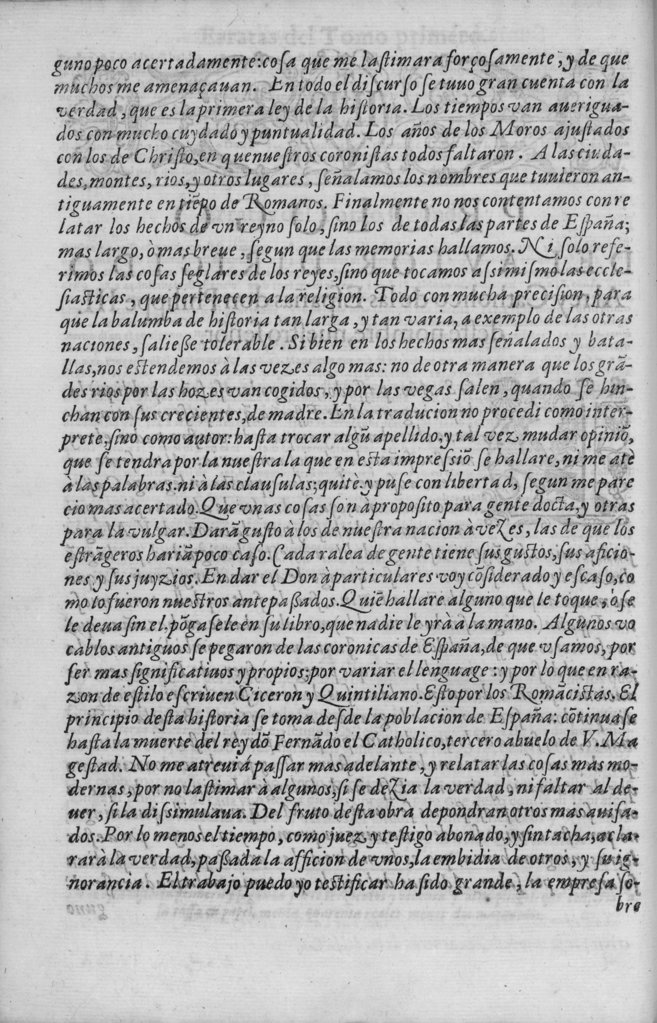 guno poco acertadamente: cosa que me lastimara forçosamente, y de que
muchos me amenaçauan. En todo el discurso se tuuo gran cuenta con la
verdad, que es la primera ley de la historia. Los tiempos van aueriguа-
dos con mucho cuydado y puntualidad. Los años de los Moros ajustados
con los de Christo, en que nuestros coronistas todos faltaron. A las ciuda-
des, montes, rios, y otros lugares, señalamos los nombres que tuuieron an-
tiguamente en tiẽpo de Romanos. Finalmente no nos contentamos con re
latar los hechos de vn reyno solo, sino los de todas las partes de España;
mas largo, ò mas breue, segun que las memorias hallamos. Ni solo refe-
rimos las cosas seglares de los reyes, sino que tocamos assimismo las eccle-
siasticas, que pertenecen a la religion. Todo con mucha precision, para
que la balumba de historia tan larga, y tan varia, a exemplo de las otras
naciones, saliesse tolerable. Si bien en los hechos mas señalados y bata-
llas, nos estendemos à las vezes algo mas: no de otra manera que los grã-
des rios por las hozes van cogidos, y por las vegas salen, quando se hin-
chan con sus crecientes, de madre. En la traducion no procedi como inter-
prete, sino como autor: hasta trocar algũ apellido, y tal vez mudar opiniõ,
que se tendra por la nuestra la que en esta impressiõ se hallare, ni me atè
à las palabras, ni à las clausulas; quitè y puse con libertad, segun me pare
cio mas acertado. Que vnas cosas son à proposito para gente docta, y otras
para la vulgar. Darã gusto à los de nuestra nacion à vezes, las de que los
estrãgeros hariã poco caso. Cada ralea de gente tiene sus gustos, sus aficio-
nes y sus juyzios. En dar el Don à particulares voy cõsiderado y escaso, co
mo lo fueron nuestros antepassados. Quiẽ hallare alguno que le toque, ò se
le deua sin el, põgasele en su libro, que nadie le yrà a la mano. Algunos vo
cablos antiguos se pegaron de las coronicas de España, de que vsamos, por
ser mas significatiuos y propios: por variar el lenguage: y por lo que en ra-
zon de estilo escriuen Ciceron y Quintiliano. Esto por los Romãcistas. El
principio desta historia se toma desde la poblacion de España: cõtinuase
hasta la muerte del rey dõ Fernãdo el Catholico, tercero abuelo de V. Ma
gestad. No me atreui à passar mas adelante, y relatar las cosas mas mo-
dernas, por no lastimar à algunos, si se dezia la verdad, ni faltar al de-
uer, si la dissimulaua. Del fruto desta obra depondran otros mas auisa-
dos. Por lo menos el tiempo, como juez y testigo abonado, y sin tacha, acla-
rarà la verdad, passada la afficion de vnos, la embidia de otros, y su ig-
norancia. El trabajo puedo yo testificar ha sido grande, la empresa so-
bre